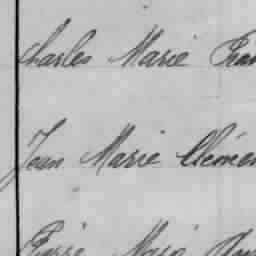 Charles Marie
Jean Marie Clémen
Pierre Marie